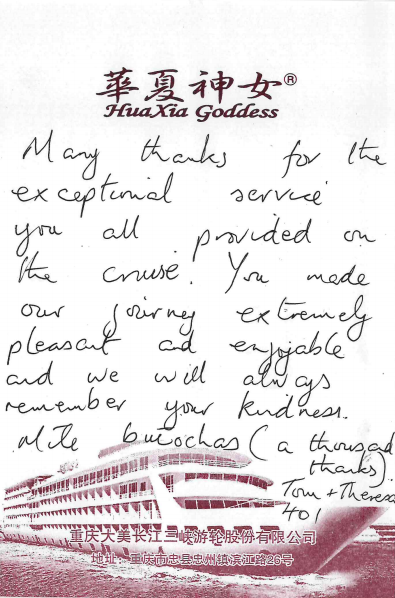 華夏神女®
HuaXia Goddess
Many thanks for the
exceptional service
you all provided on
the cruise. You made
our journey extremely
pleasant and enjoyable
and we will always
remember your kindness.
Mile buiochas (a thousand
thanks).
Tom + Theresa
401
重庆大美长江三峡游轮股份有限公司
地址：重庆市忠县忠州镇滨江路26号